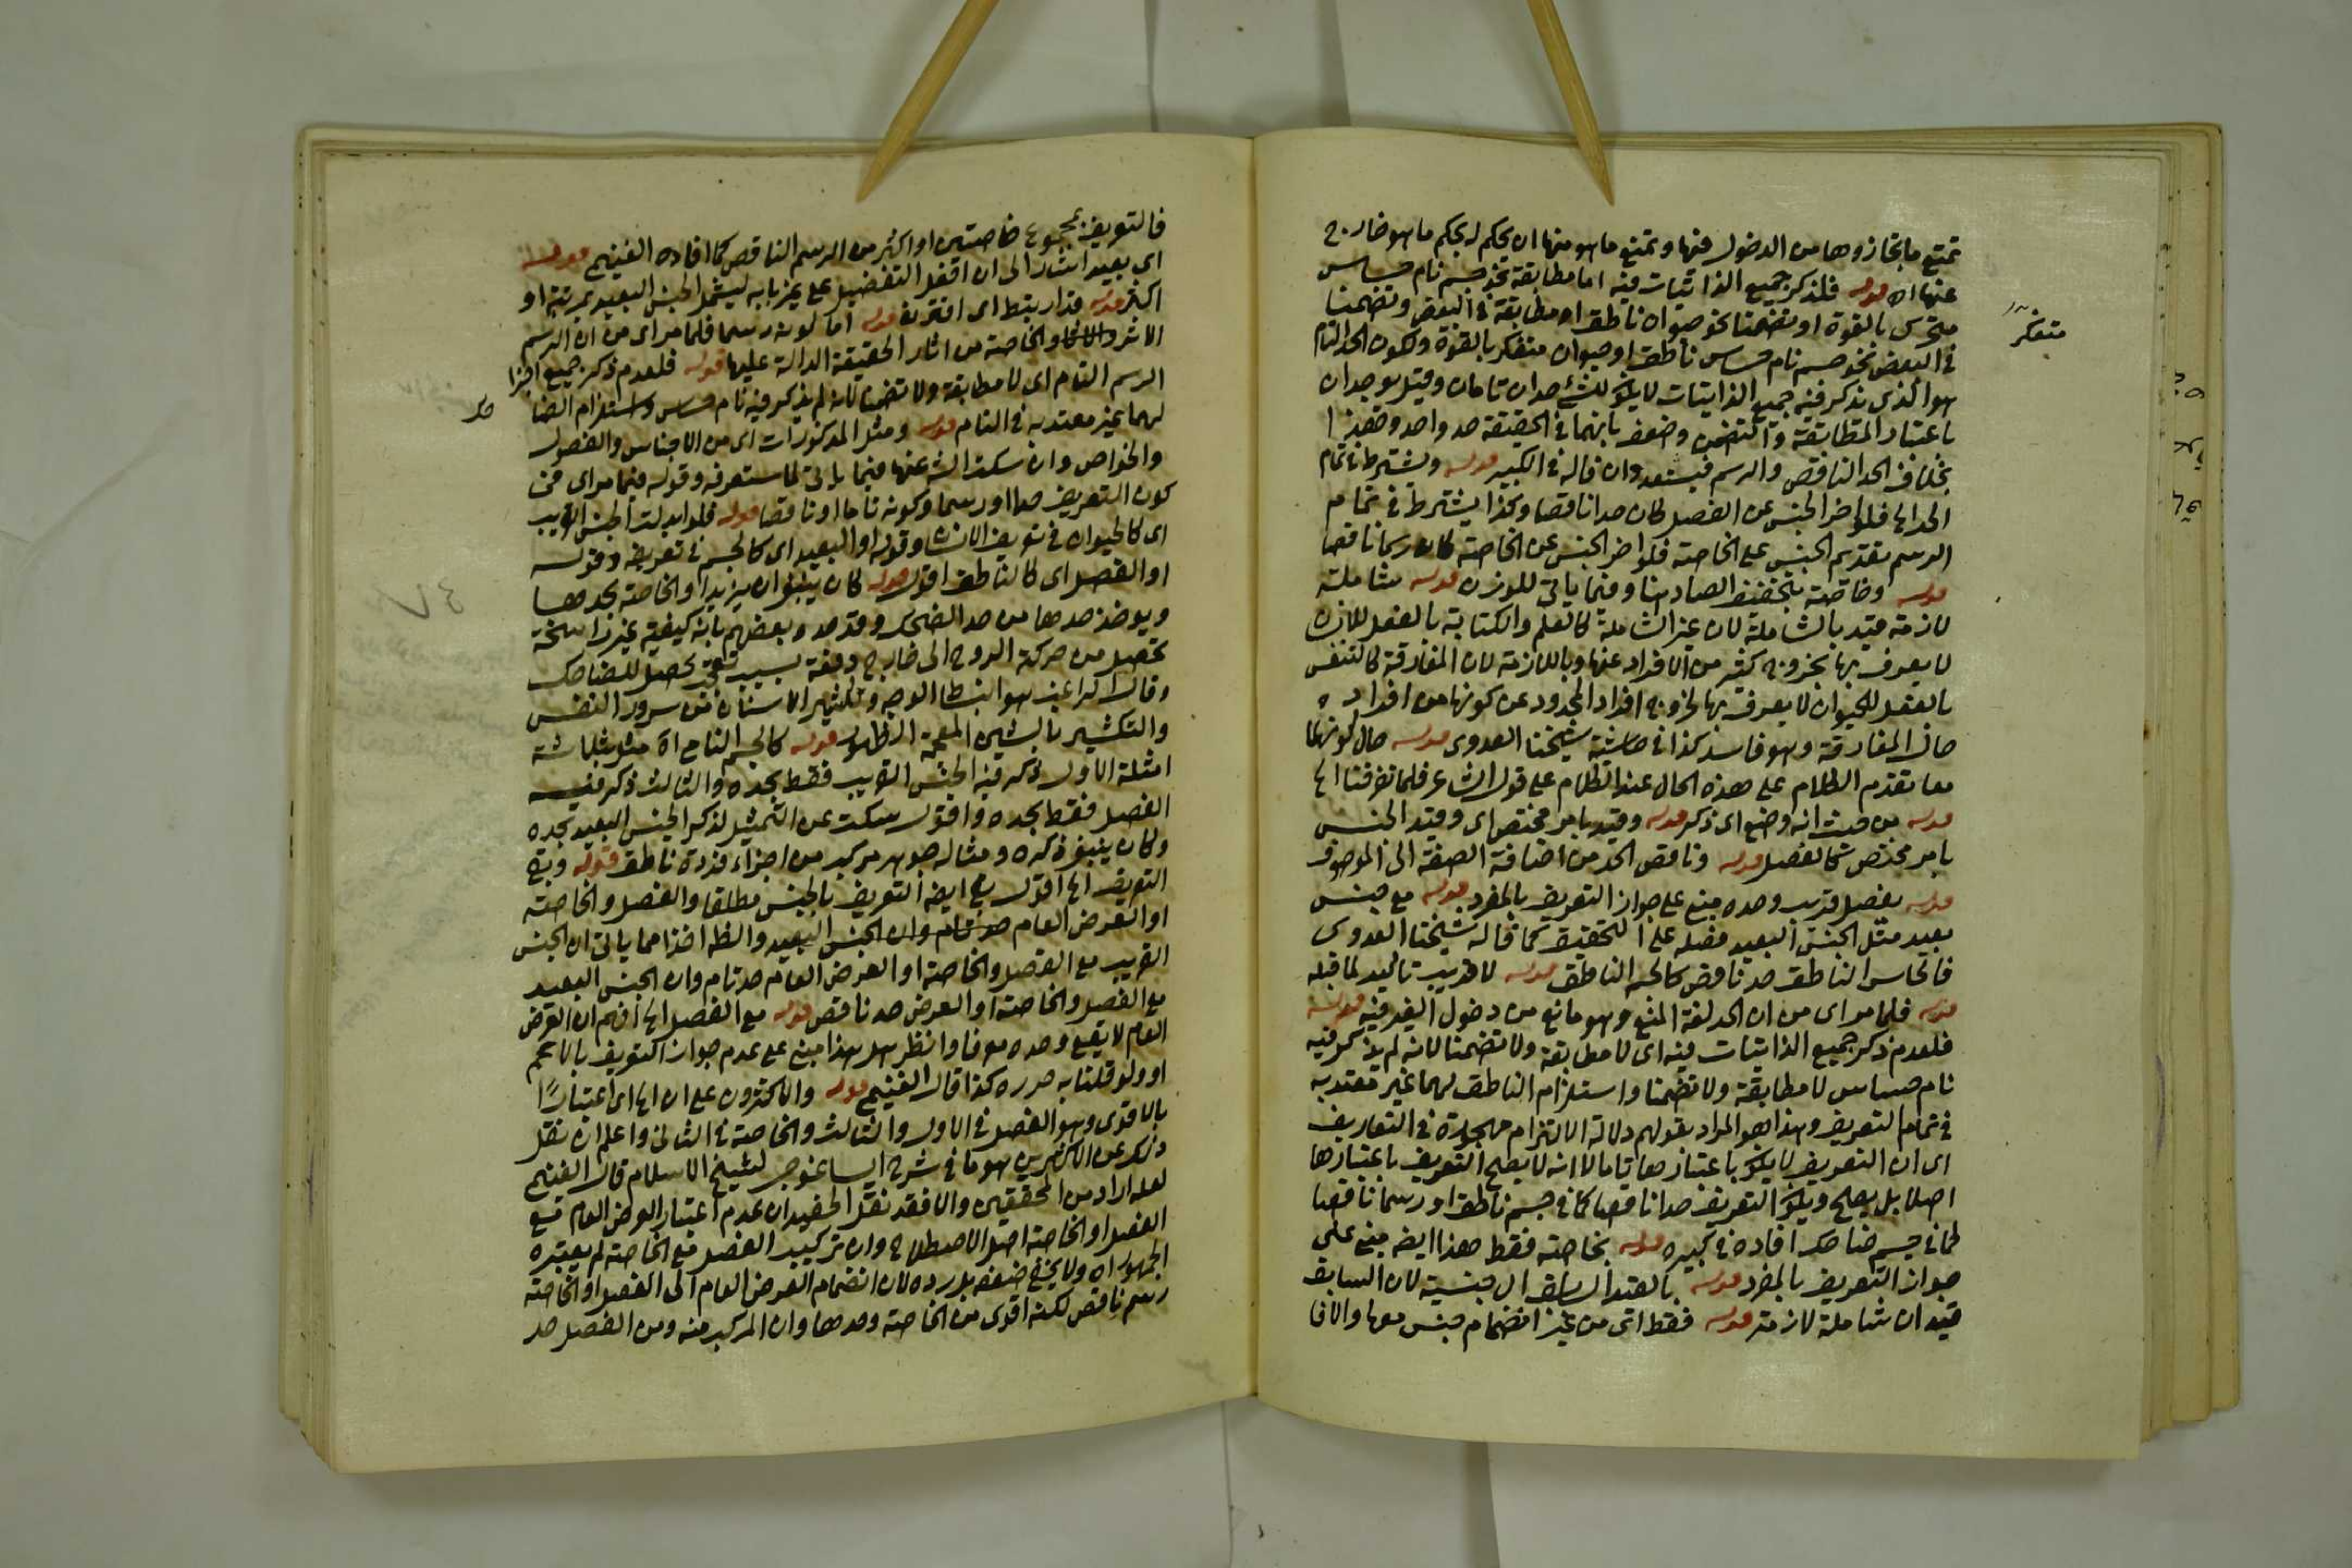 تمنع ما يجاز وها من الدخول فيها وتمنع ما هو منها ان يحكم له بحكم ما هو خارج
عنها اه قوله فلذكر جميع الذاتيات فيه اما مطابقة نحو جسم نام حساس
متحرك بالقوة او تضمنا نحو حيوان ناطق او مطابقة في البعض وتضمنا
في البعض نحو جسم نام حساس ناطق او حيوان متفكر بالقوة ولكون الحد التام
متفكر
هو الذي يذكر فيه جميع الذاتيات لا يكون للشئ حدان تامان وقيل يوجدان
باعتبار المطابقة والتضمن وضعف بانهما في الحقيقة حد واحد وهذا
بخلاف الحد الناقص والرسم فيتعددان قاله في الكبير قوله ويشترط في تمام
الحد الخ فلو اخر الجنس عن الفصل كان حدا ناقصا وكذا يشترط في تمام
الرسم تقديم الجنس على الخاصة فلو اخر الجنس عن الخاصة كان رسما ناقصا
قوله وخاصة بتخفيف الصاد هنا وفيما ياتي للوزن قوله شاملة
لازمة قيد بالشاملة لان غير الشاملة كالعلم والكتابة بالفعل للانسان
لا يعرف بها لخروج كثير من الافراد عنها وباللازمة لان المفارقة كالتنفس
بالفعل للحيوان لا يعرف بها لخروج افراد المحدود عن كونها من افراده
حال المفارقة وهو فاسد كذا في حاشية شيخنا العدوي قوله حال كونها
معا تقدم الكلام على هذه الحال عند الكلام على قول الشاعر فلما تفرقنا الخ
قوله من حيث انه وضع اي ذكر قوله وقيد بامر مختص اي وقيد الجنس
بامر مختص كالفصل قوله وناقص الحد من اضافة الصفة الى الموصوف
قوله بفصل قريب وحده مبني على جواز التعريف بالمفرد قوله مع جنس
بعيد مثل الجنس البعيد فصله على التحقيق كما قاله شيخنا العدوي
فالحاس الناطق حد ناقص كالجسم الناطق قوله لا قريب تاكيد لما قبله
قوله فلما مر اي من ان الحد لغة المنع وهو مانع من دخول الغير فيه قوله
فلعدم ذكر جميع الذاتيات فيه اي لا مطابقة ولا تضمنا لانه لم يذكر فيه
نام حساس لا مطابقة ولا تضمنا واستلزام الناطق لهما غير معتد به
في تمام التعريف وهذا هو المراد بقولهم دلالة الالتزام مهجورة في التعاريف
اي ان التعريف لا يكون باعتبارها تاما لا انه لا يصح التعريف باعتبارها
اصلا بل يصح ويكون التعريف حدا ناقصا كما في جسم ناطق او رسما ناقصا
كما في جسم ضاحك افاده في كبيره قوله بخاصة فقط هذا ايضا مبني على
جواز التعريف بالمفرد قوله بالقيد السابق ال جنسية لان السابق
قيدان شاملة لازمة قوله فقط اتى من غير انضمام جنس معها والافا
فالتعريف بمجموع خاصتين او اكثر من الرسم الناقص كما افاده الغنيمي قوله
اي بعيد اشار الى ان افعل التفضيل على غير بابه ليشمل الجنس البعيد بمرتبة او
اكثر قوله قد ارتبط اي اقترن قوله اما كونه رسما فلما مر اي من ان الرسم
الاثر والخاصة من اثار الحقيقة الدالة عليها قوله فلعدم ذكر جميع اجزا
الرسم التام اي لا مطابقة ولا تضمنا لانه لم يذكر فيه نام حساس واستلزام الضا
حك
لهما غير معتد به في التام قوله ومثل المذكورات اي من الاجناس والفصول
والخواص وان سكت الش عنها فيما ياتي لما ستعرفه وقوله فيما مر اي من
كون التعريف حدا او رسما وكونه تاما او ناقصا قوله فلو ابدلت الجنس القريب
اي كالحيوان في تعريف الانسان وقوله او البعيد اي كالجسم في تعريفه وقوله
او الفصل اي كالناطق اقول قوله كان ينبغي ان يزيد او الخاصة بحدها
ويوخذ حدها من حد الضحك وقد حده بعضهم بانه كيفية غير راسخة
تحصل من حركة الروح الى خارج دفعة بسبب تعجب يحصل للضاحك
وقال الراغب هو انبساط الوجه وتكشير الاسنان من سرور النفس
والتكشير بالشين المعجمة الاظهار قوله كالجسم النامي اه مثل بثلاثة
امثلة الاول ذكر فيه الجنس القريب فقط بحده والثالث ذكر فيه
الفصل فقط بحده واقول سكت عن التمثيل لذكر الجنس البعيد بحده
وكان ينبغي ذكره ومثاله جوهر مركب من اجزاء فردة ناطق قوله وبقي
التعريف الخ اقول بقي ايضا التعريف بالجنس مطلقا والفصل والخاصة
او العرض العام حد تام وان الجنس البعيد والظ اخذا مما ياتي ان الجنس
القريب مع الفصل والخاصة او العرض العام حد تام وان الجنس البعيد
مع الفصل والخاصة او العرض حد ناقص قوله مع الفصل الخ افهم ان العرض
العام لا يقع وحده معرفا وانظر هل هذا مبني على عدم جواز التعريف بالاعم
او ولو قلنا به حرره كذا قال الغنيمي قوله والاكثرون على ان الخ اي اعتبارا
بالاقوى وهو الفصل في الاول والثالث والخاصة في الثاني واعلم ان نقل
ذلك عن الاكثرين هو ما في شرح ايساغوجي لشيخ الاسلام قال الغنيمي
لعله اراد من المحققين والا فقد نقل الحفيد ان عدم اعتبار العرض العام مع
الفصل او الخاصة اصل الاصطلاح وان تركيب الفصل مع الخاصة لم يعتبره
الجمهور اه ولا يخفى ضعفه بل رده لان انضمام العرض العام الى الفصل او الخاصة
رسم ناقص لكنه اقوى من الخاصة وحدها وان المركب منه ومن الفصل حد